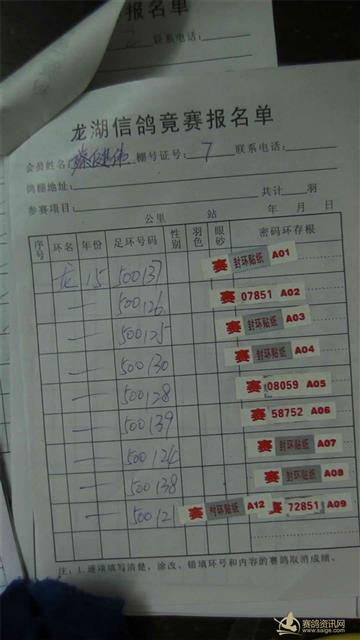 名单
联系电话：
龙湖信鸽竟赛报名单
会员姓名： 健伟 棚号证号： 7 联系电话：
鸽棚地址： 共计 羽
参赛项目： 公里 站 年 月 日
序号 环名 年份 足环号码 性别 羽色 眼砂 密码环存根
龙 15 500137 赛 封环贴纸 A01
500126 赛 07851 A02
500125 赛 封环贴纸 A03
500130 赛 封环贴纸 A04
500128 赛 08059 A05
500139 赛 58752 A06
500124 赛 封环贴纸 A07
500138 赛 封环贴纸 A08
50012 赛 封环贴纸 A12 赛 72851 A09
注：1.逐项填写清楚，涂改、错填环号和内容的赛鸽取消成绩。
赛鸽资讯网
www.saige.com